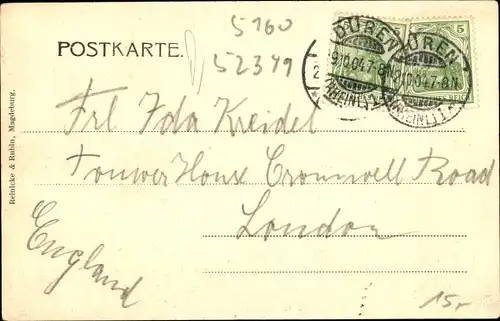 5160
52349
POSTKARTE.
DÜREN
9.10.04.7-8N
(RHEINL.)
DÜREN
9.10.04.7-8N
(RHEINL.)
5
Frl Ida Kreidel
House Cromwell Road
London
England
Reinicke & Rubin, Magdeburg.
15,-